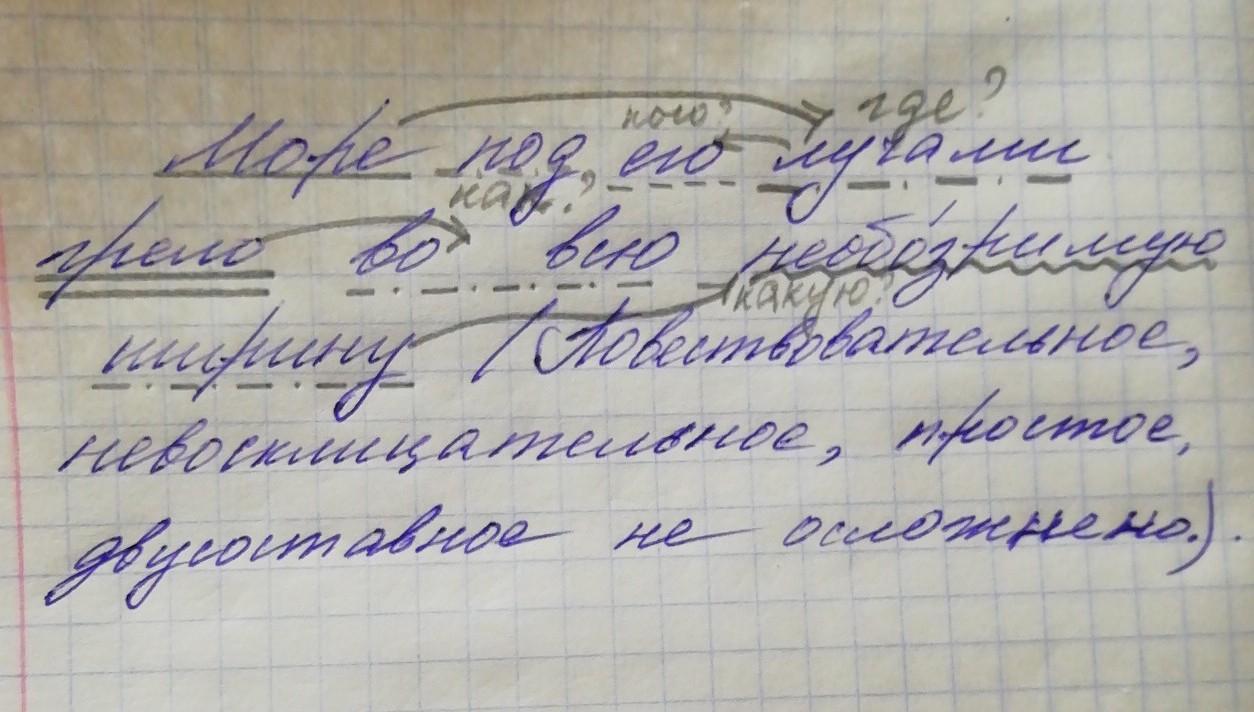 где?
кого?
Море под его лучами
как?
грело во всю необозримую
какую?
ширину (Повествовательное,
невосклицательное, простое,
двусоставное не осложнено.).